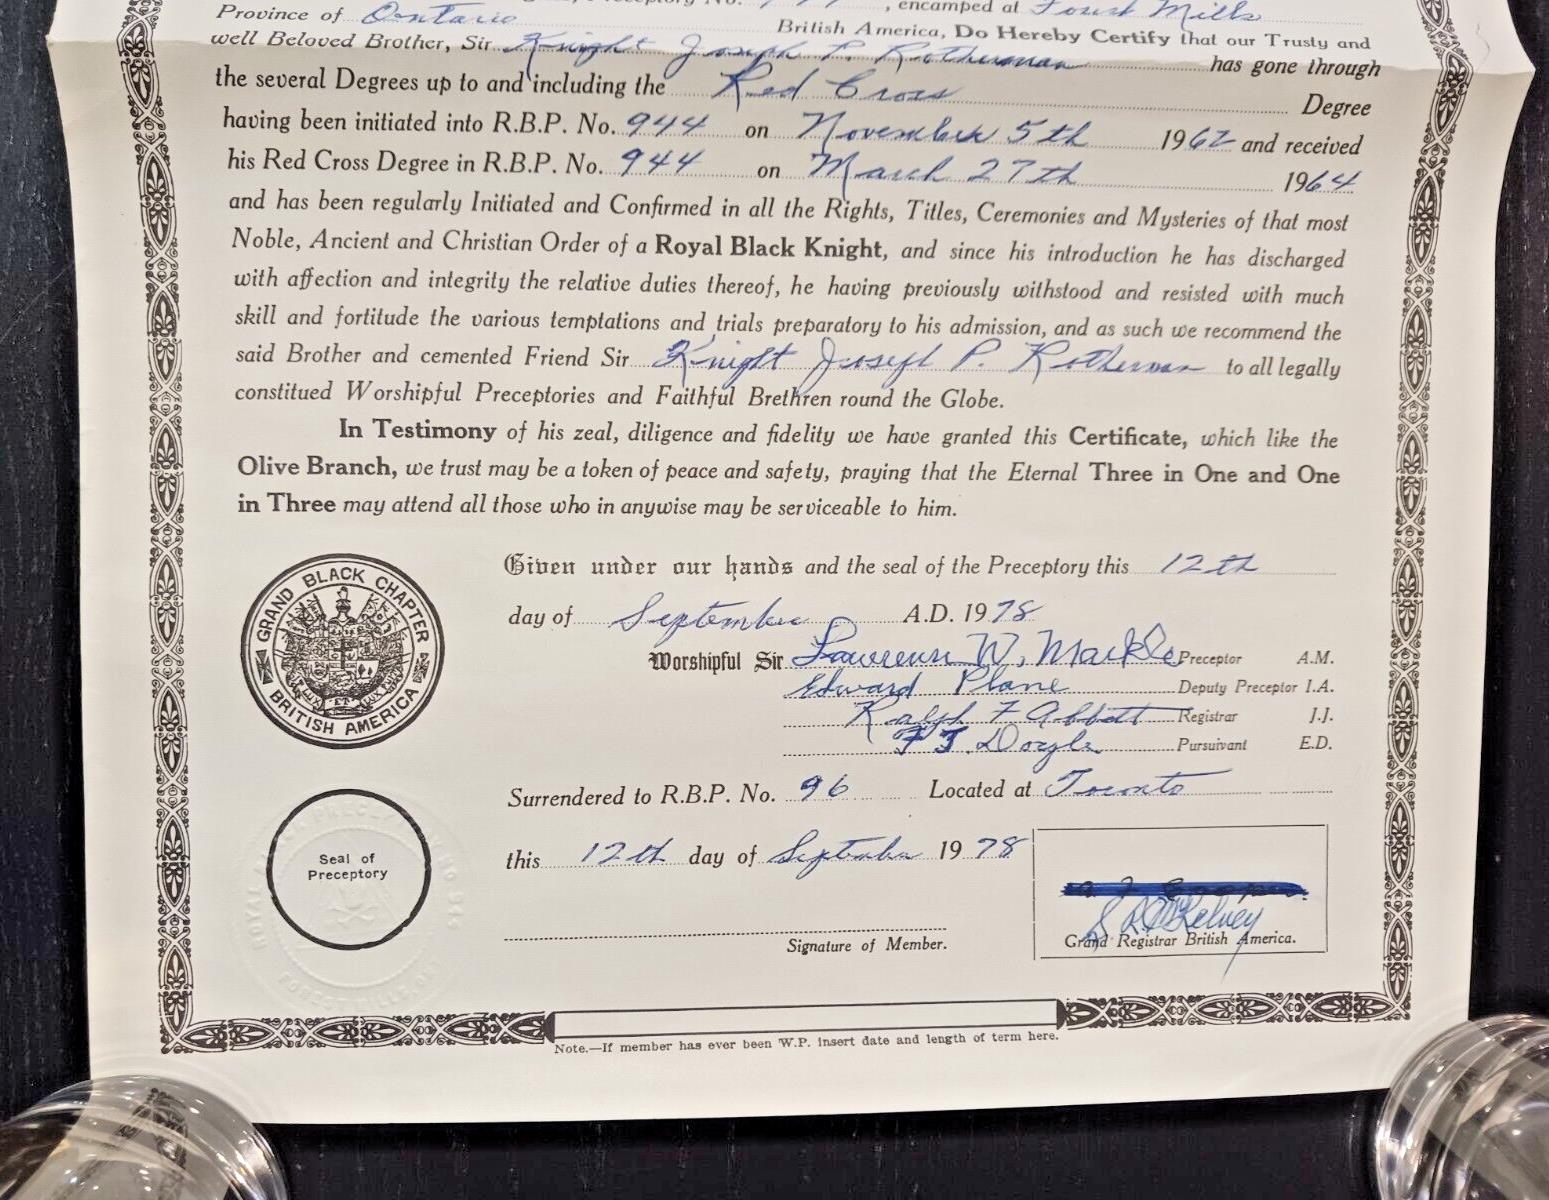 , encamped at Forest Mills
Province of Ontario British America, Do Hereby Certify that our Trusty and
well Beloved Brother, Sir Knight Joseph P. Rotherman has gone through
the several Degrees up to and including the Red Cross Degree
having been initiated into R.B.P. No. 944 on November 5th 1962 and received
his Red Cross Degree in R.B.P. No. 944 on March 27th 1964
and has been regularly Initiated and Confirmed in all the Rights, Titles, Ceremonies and Mysteries of that most
Noble, Ancient and Christian Order of a Royal Black Knight, and since his introduction he has discharged
with affection and integrity the relative duties thereof, he having previously withstood and resisted with much
skill and fortitude the various temptations and trials preparatory to his admission, and as such we recommend the
said Brother and cemented Friend Sir Knight Joseph P. Rotherman to all legally
constitued Worshipful Preceptories and Faithful Brethren round the Globe.
In Testimony of his zeal, diligence and fidelity we have granted this Certificate, which like the
Olive Branch, we trust may be a token of peace and safety, praying that the Eternal Three in One and One
in Three may attend all those who in anywise may be serviceable to him.
GRAND BLACK CHAPTER
BRITISH AMERICA
Given under our hands and the seal of the Preceptory this 12th
day of September A.D. 1978
Worshipful Sir Lawrence W. Markle Preceptor A.M.
Edward Plane Deputy Preceptor I.A.
Ralph F Abbott Registrar J.J.
F J. Doyle Pursuivant E.D.
Surrendered to R.B.P. No. 96 Located at Toronto
this 12th day of September 1978
Seal of
Preceptory
Signature of Member.
Grand Registrar British America.
Note.—If member has ever been W.P. insert date and length of term here.